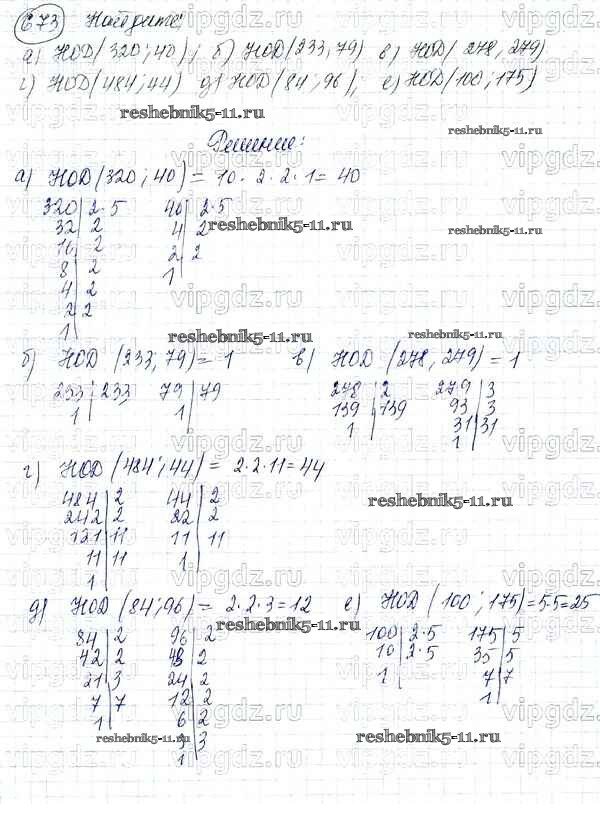 673 Найдите:
а) НОД(320; 40); б) НОД(233, 79) в) НОД(278, 279)
г) НОД(484; 44) д) НОД(84; 96), е) НОД(100; 175)
reshebnik5-11.ru
Решение:
а) НОД(320; 40) = 10 · 2 · 2 · 1 = 40
320 | 2·5 40 | 2·5
32 | 2 4 | 2
16 | 2 2 | 2
8 | 2 1
4 | 2
2 | 2
1
б) НОД (233, 79) = 1 в) НОД (278, 279) = 1
233 | 233 79 | 79 278 | 2 279 | 3
1 1 139 | 139 93 | 3
1 31 | 31
1
г) НОД (484; 44) = 2·2·11 = 44
484 | 2 44 | 2
242 | 2 22 | 2
121 | 11 11 | 11
11 | 11 1
1
д) НОД (84; 96) = 2·2·3 = 12 е) НОД (100; 175) = 5·5 = 25
84 | 2 96 | 2 100 | 2·5 175 | 5
42 | 2 48 | 2 10 | 2·5 35 | 5
21 | 3 24 | 2 1 7 | 7
7 | 7 12 | 2 1
1 6 | 2
3 | 3
1
reshebnik5-11.ru
vipgdz.ru